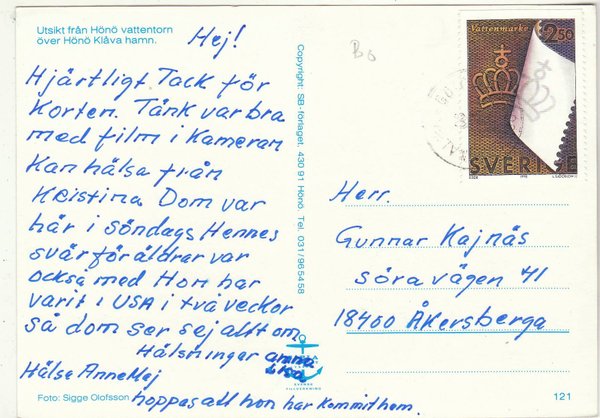 Utsikt från Hönö vattentorn
över Hönö Klåva hamn.
Hej!
Hjärtligt Tack för
Korten. Tänk var bra
med film i Kameran
Kan hälsa från
Kristina Dom var
här i Söndags Hennes
svärföräldrar var
också med Hon har
varit i USA i två veckor
så dom ser sej allt om
Hälsningar anna
Lisa
Hälsa AnneMaj
hoppas att hon har kommit hem.
Foto: Sigge Olofsson
Copyright: SB-förlaget. 430 91 Hönö. Tel. 031/96 54 58
Bo
Vattenmärke
2.50
SVERIGE
1990
Herr.
Gunnar Kajnäs
söra vägen 41
18400 Åkersberga
121